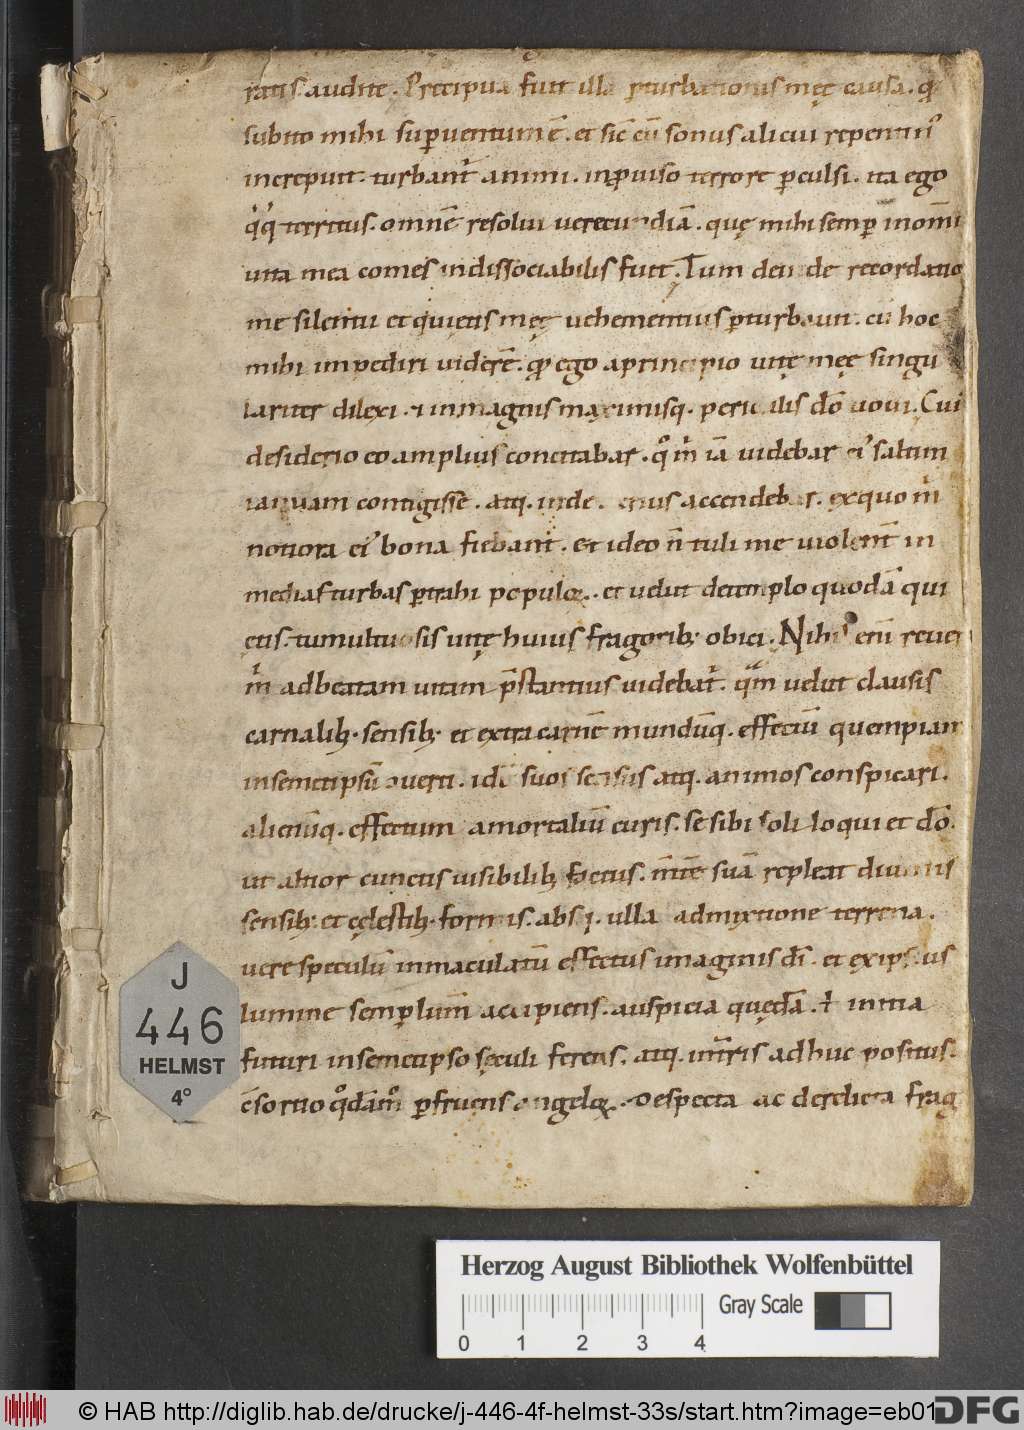 ratis. audite. Precipua fuit illa ꝑturbationis meę causa. qđ
subito mihi suꝑuentum ē. et sic cū sonus alicui repentin᷒
increpuit. turbant᷑ animi. inꝓuiso terrore ꝑculsi. ita ego
q᷒q᷒ territus. omnē resolui uerecundiā. quę mihi semꝑ in om̄i
uita mea comes indissociabilis fuit. Tum deinde recordatio
me silentii et quietis meę uehementius ꝑturbauit. cū hoc
mihi impediri uiderē. qđ ego a principio uitę meę singu
lariter dilexi. & in magnis maximisq. periculis dō uoui. Cui
desiderio eo amplius concitabar. qͦ m̉ iā uidebar ei᷒ saltim
ianuam contigisse. atq. inde accendebar. ex quo m̉
notiora ei᷒ bona fiebant. et ideo n̄ tuli me uiolent̄ in
medias turbas ꝑtrahi populoꝝ. et uelut de templo quodā qui
etis. tumultuosis uitę huius fragorib; obici. Nihil eni
m̉ ad beatam uitam p̄stantius uidebat᷑. qͣm uelut clausis
carnalib; sensib; et extra carnē mundūq. effectū quempiam
in semetipsū conuerti. suos sensus atq. animos conspicari.
alienūq. effectum a mortaliū curis. se sibi soli loqui et dō.
ut altior cunctis uisibilib; factus. m̄tē suā repleat diuinis
sensib; et cęlestib; formis. absq. ulla admixtione terrena.
uere speculū inmaculatū effectus imaginis dī. et ex ipsius
lumine semꝑ lum̄ accipiens. auspicia quędā. & initia
futuri in semetipso sęculi ferens. atq. in t̄ris adhuc positus.
c̄sortio qͦdāmͦ ꝑfruens angeloꝝ. Despecta ac derelicta frag
J
446
HELMST
4°
Herzog August Bibliothek Wolfenbüttel
Gray Scale
0 1 2 3 4
© HAB http://diglib.hab.de/drucke/j-446-4f-helmst-33s/start.htm?image=eb01
DFG